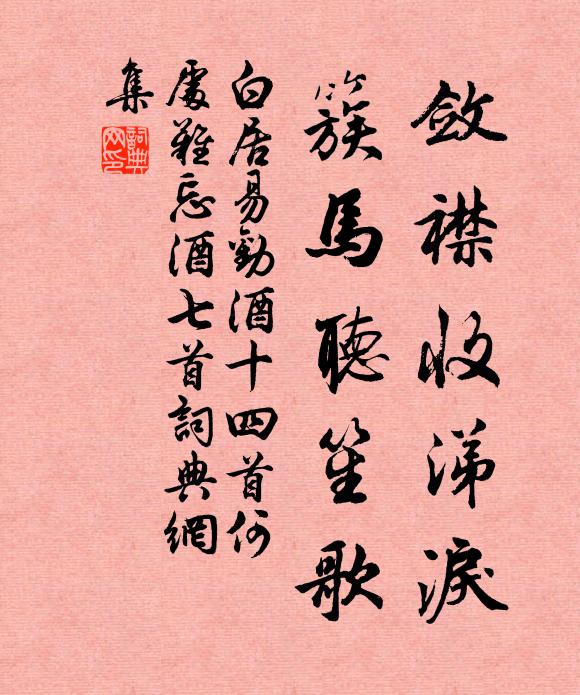 斂襟收涕淚
簇馬聽笙歌
白居易勸酒十四首何
處難忘酒七首詞典網
集
詞典網印